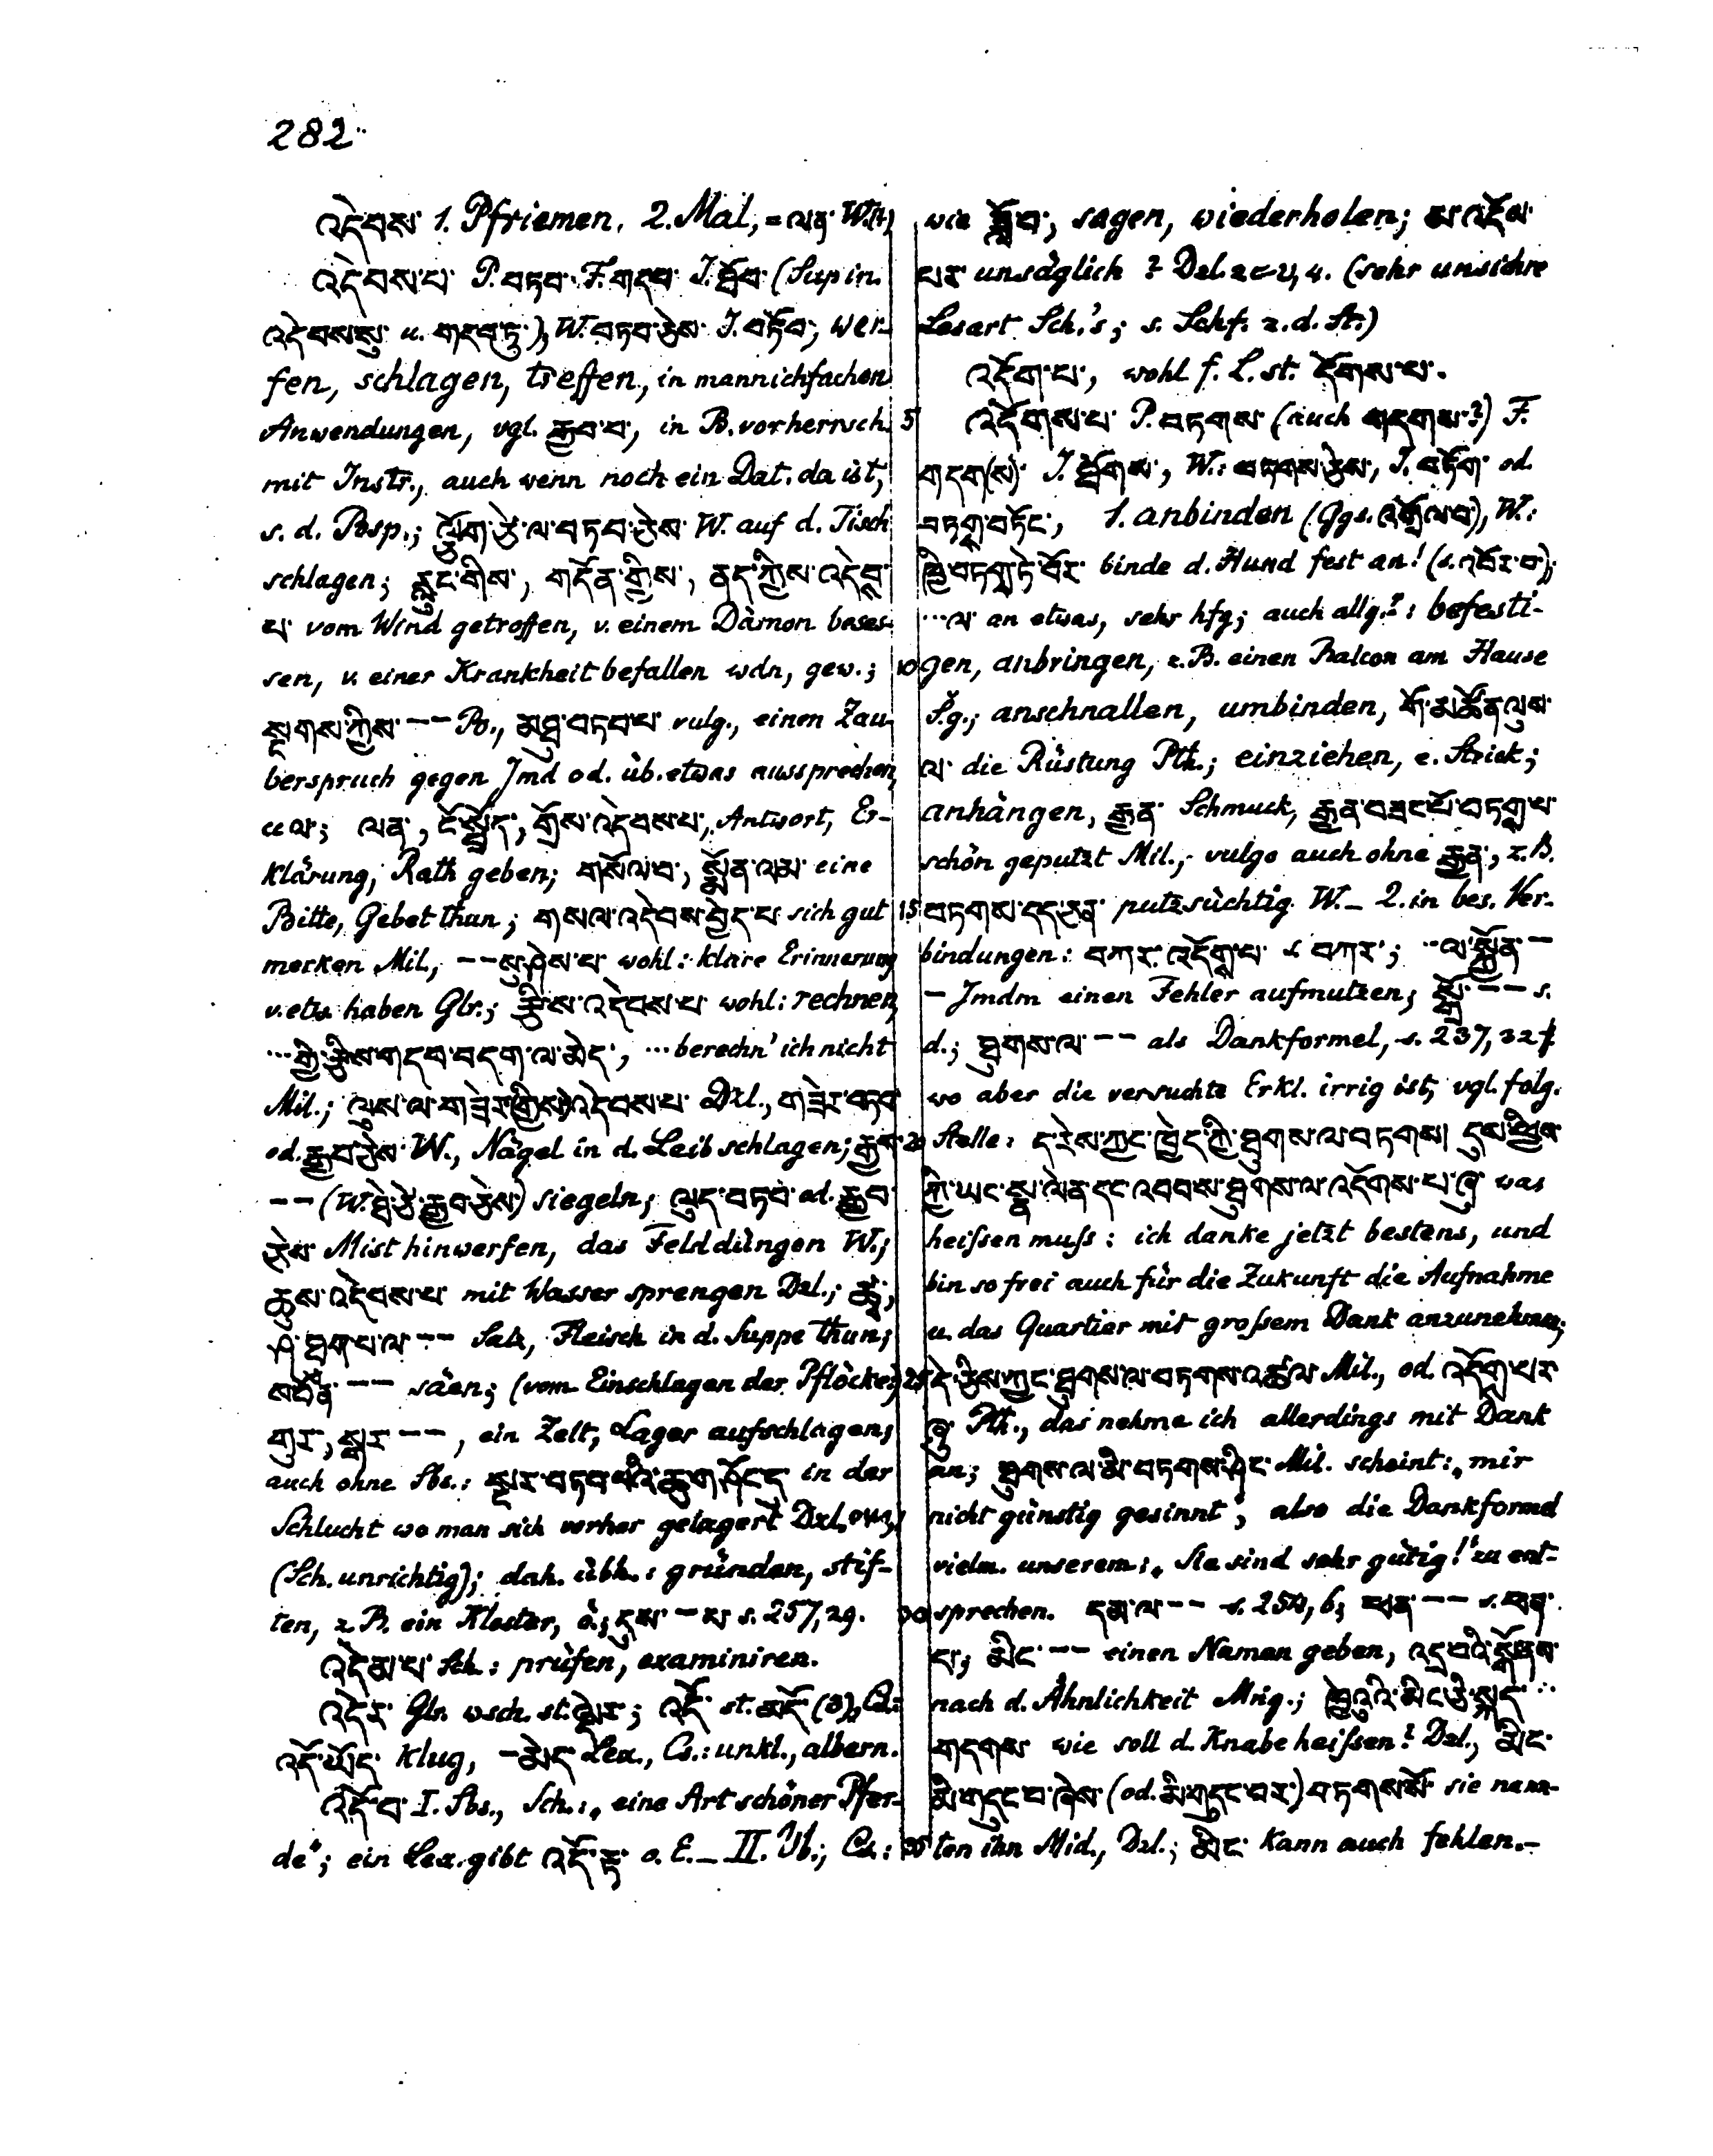 282
འདེབས་ 1. Pfriemen, 2. Mal, = ལན་ W.
འདེབས་པ་ P. བཏབ་ F. གདབ་ J. ཐོབ་ (Supin.
འདེབསསུ་ u. གདབ་ཏུ་), W. བཏབ་ཅེས་ J. བཏོབ་, wer-
fen, schlagen, treffen, in mannichfachen
Anwendungen, vgl. རྒྱབ་པ་, in B. vorherrsch.
mit Instr., auch wenn noch ein Dat. da ist,
s. d. Bsp.; ལྕོག་ཙེ་ལ་བཏབ་ཅེས་ W. auf d. Tisch
schlagen; རླུང་གིས་, གདོན་གྱིས་, ནད་ཀྱིས་འདེབས་
པ་ vom Wind getroffen, v. einem Dämon beses-
sen, v. einer Krankheit befallen wdn, gew.;
སྔགས་ཀྱིས་ –– Po., མཐུ་བཏབ་པ་ vulg., einen Zau-
berspruch gegen Jmd od. üb. etwas aussprechen,
ལན་, ངོ་སྤྲོད་, གྲོས་འདེབས་པ་, Antwort, Er-
klärung, Rath geben; གསོལ་བ་, སྨོན་ལམ་ eine
Bitte, Gebet thun; གསལ་འདེབས་བྱེད་པ་ sich gut
merken Mil., ––སུ་ཤེས་པ་ wohl: klare Erinnerung
v. etw. haben Glr.; རྩིས་འདེབས་པ་ wohl: rechnen,
...གྱི་རྩིས་གདབ་བདག་ལ་མེད་, ...berechn' ich nicht
Mil.; ལུས་ལ་གཟེར་(གྱིས་)འདེབས་པ་ Dzl., གཟེར་བཏབ་
od. རྒྱབ་ཅེས་ W., Nägel in d. Leib schlagen; རྒྱས་
–– (W. ཐེ་ཙེ་རྒྱབ་ཅེས་) siegeln; ལུད་བཏབ་ od. རྒྱབ་
ཅེས་ Mist hinwerfen, das Feld düngen W.;
ཆུས་འདེབས་པ་ mit Wasser sprengen Dzl.; ཚྭ་,
ཤ་ཐུག་པ་ལ་ –– Salz, Fleisch in d. Suppe thun;
སབོན་ –– säen; (vom Einschlagen der Pflöcke:)
གུར་, སྒར་ ––, ein Zelt, Lager aufschlagen;
auch ohne Sbs.: སྔར་བཏབ་པའི་ཆུ་གཤོང་ད་ in der
Schlucht wo man sich vorher gelagert Dzl.
(Sch. unrichtig); dah. übh.: gründen, stif-
ten, z. B. ein Kloster, ö.; དུས་ –ས་ s. 257,29.
འདེམ་པ་ Sch.: prüfen, examiniren.
འདེར་ Glr. wsch. st. སྡེར་; འདོ་ st. མདོ་ (3), Cs.:
འདོ་ཡོད་ klug, –མེད་ Lex., Cs.: unkl., albern.
འདོ་བ་ I. Sbs., Sch.: „eine Art schöner Pfer-
de“; ein Lex. gibt འདོ་རྟ་ o. E. – II. Vb.; Cs.:
wie ཟློབ་, sagen, wiederholen; མ་འདོས་
པར་ unsäglich? Dzl. 4. (sehr unsichre
Lesart Sch.'s; s. Schf. z. d. St.)
འདོག་པ་, wohl f. L. st. དོགས་པ་.
5 འདོགས་པ་ P. བཏགས་ (auch གདགས་?) F.
གདག(ས)་ J. ཐོགས་, W.: བཏགས་ཅེས་, J. བཏོག་ od.
བཏགས་བཏོང་, 1. anbinden (Ggs. འགྲོལ་བ་), W.:
ཁྱི་བཏགས་ཏེ་བོར་ binde d. Hund fest an! (s. འབོར་བ་);
...ལ་ an etwas, sehr hfg; auch allg.?: befesti-
10 gen, anbringen, z. B. einen Balcon am Hause
S.g.; anschnallen, umbinden, གོ་མཚོན་ལུས་
ལ་ die Rüstung Pth.; einziehen, e. Strick;
anhängen, རྒྱན་ Schmuck, རྒྱན་བཟང་པོ་བཏགས་པ་
schön geputzt Mil., vulgo auch ohne རྒྱན་, z. B.
15 བཏགས་དད་ཅན་ putzsüchtig W. – 2. in bes. Ver-
bindungen: བཀར་འདོགས་པ་ s. བཀར་; ...ལ་སྐྱོན་ –
– Jmdm einen Fehler aufmutzen; སྒྲོ་ –– s.
d.; ཐུགས་ལ་ –– als Dankformel, s. 237,32 f.
wo aber die versuchte Erkl. irrig ist, vgl. folg.
20 Stelle: ད་རེས་ཀྱང་ཁྱེད་ཀྱི་ཐུགས་ལ་བཏགས། དུས་ཕྱིས་
ཀྱི་ཡང་སྣ་ལེན་དང་འབབས་ཐུགས་ལ་འདོགས་པ་ཞུ་ was
heißen muß: ich danke jetzt bestens, und
bin so frei auch für die Zukunft die Aufnahme
u. das Quartier mit großem Dank anzunehmen;
25 དེ་ཅིས་ཀྱང་ཐུགས་ལ་བཏགས་འཚལ་ Mil., od. འདོགས་པར་
ཞུ་ Pth., das nehme ich allerdings mit Dank
an; ཐུགས་ལ་མི་བཏགས་ཤིང་ Mil. scheint: „mir
nicht günstig gesinnt“; also die Dankformel
vielm. unserem: „Sie sind sehr gütig!“ zu ent-
30 sprechen. དམ་ལ་ –– s. 250,6; ཕན་ –– s. ཕན་
པ་; མིང་ –– einen Namen geben, འདྲ་བའི་སྒོ་ནས་
nach d. Ähnlichkeit Mng.; བྱེའུའི་མིང་ཅི་སྐད་
གདགས་ wie soll d. Knabe heißen? Dzl., མིང་
མི་གདུང་བ་ཞེས་ (od. མི་གདུང་བར་) བཏགས་སོ་ sie nann-
35 ten ihn Mid., Dzl.; མིང་ kann auch fehlen. –